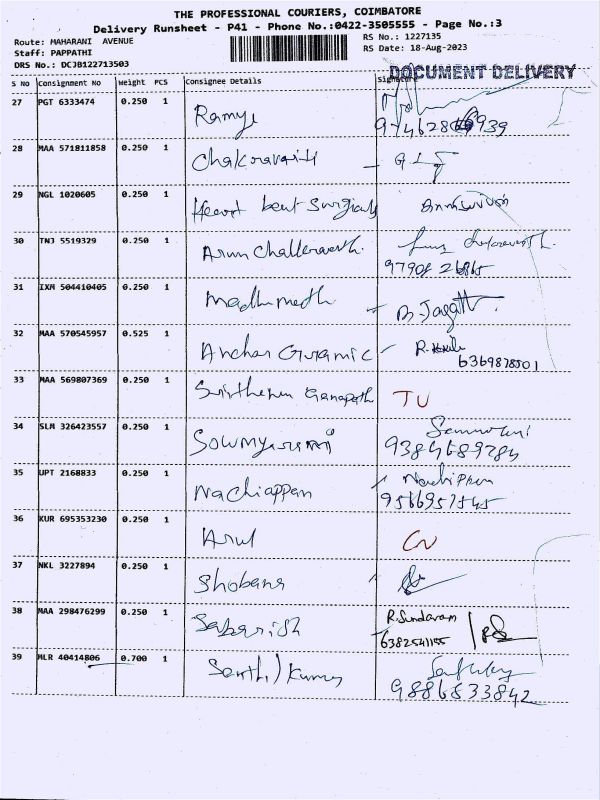 THE PROFESSIONAL COURIERS, COIMBATORE
Delivery Runsheet - P41 - Phone No.:0422-3505555 - Page No.:3
Route: MAHARANI AVENUE RS No.: 1227135
Staff: PAPPATHI RS Date: 18-Aug-2023
DRS No.: DCJB122713503
DOCUMENT DELIVERY
S No Consignment No Weight PCS Consignee Details Signature
27 PGT 6333474 0.250 1 Ramya
28 MAA 571811858 0.250 1 Chakravarthi
29 NGL 1020605 0.250 1 Heart beat Surgicals
30 TNJ 5519329 0.250 1 Arun
31 IXM 504410405 0.250 1
B. Jagatt
32 MAA 570545957 0.525 1 Anchor Ceramic R.
6369878501
33 MAA 569807369 0.250 1 Ganapath TU
34 SLM 326423557 0.250 1
9384689784
35 UPT 2168833 0.250 1 Nachiappan
9566957545
36 KUR 695353230 0.250 1 Arul CN
37 NKL 3227894 0.250 1 Shobana
38 MAA 298476299 0.250 1 Sabarish R. Sundaram
6382541155
39 MLR 40414806 0.700 1 Senthil Kumar
9886833842